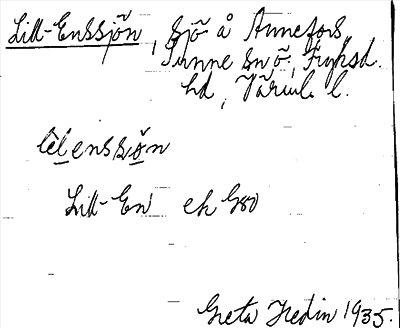 Lill-Enssjön, sjö å Annefors,
Sunne snö, Fryksd.
hd, Värml. l.
lìlenssòn
Lill-En ek G80
Greta Hedin 1935.